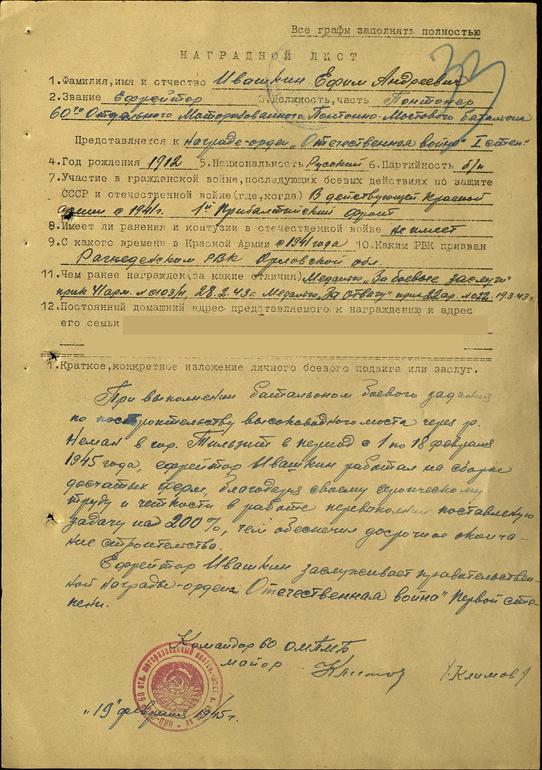 Все графы заполнять полностью
НАГРАДНОЙ ЛИСТ
1.Фамилия,имя и отчество Ивашкин Ефим Андреевич
2.Звание Ефрейтор 3.Должность,часть Понтонер
60го Отдельного Моторизованного Понтонно-Мостового батальона
Представляется к Награде-орден „Отечественная война" I степ"
4.Год рождения 1912 5.Национальность Русский 6.Партийность б/п
7.Участие в гражданской войне,последующих боевых действиях по защите
СССР и отечественной войне(где,когда) В действующей Красной
Армии с 1941г. 1й Прибалтийский фронт
8.Имеет ли ранения и контузии в отечественной войне не имеет
9.С какого времени в Красной Армии с 1941года 10.Каким РВК призван
Рагнеденским РВК Орловской обл.
11.Чем ранее награжден(за какие отличия) Медалью „За боевые заслуги"
прик 11арм. № 0103/н, 28.2.43г. Медалью „За Отвагу" прик 22ар. №022. 19.3.43г.
12.Постоянный домашний адрес представляемого к награждению и адрес
его семьи
1.Краткое,конкретное изложение личного боевого подвига или заслуг.
При выполнении батальоном боевого задания
по строительству высоководного моста через р.
Неман в гор. Тильзит в период с 1 по 18 февраля
1945 года, ефрейтор Ивашкин работал на сборке
досчатых ферм, благодаря своему героическому
труду и четкости в работе перевыполнил поставленную
задачу на 200%, чем обеспечил досрочное оконча-
ние строительства.
Ефрейтор Ивашкин заслуживает правительствен-
ной награды-орден „Отечественная война" первой сте-
пени.
Командир 60 ОМПМБ
майор /Климов/
"19" февраля 1945г.